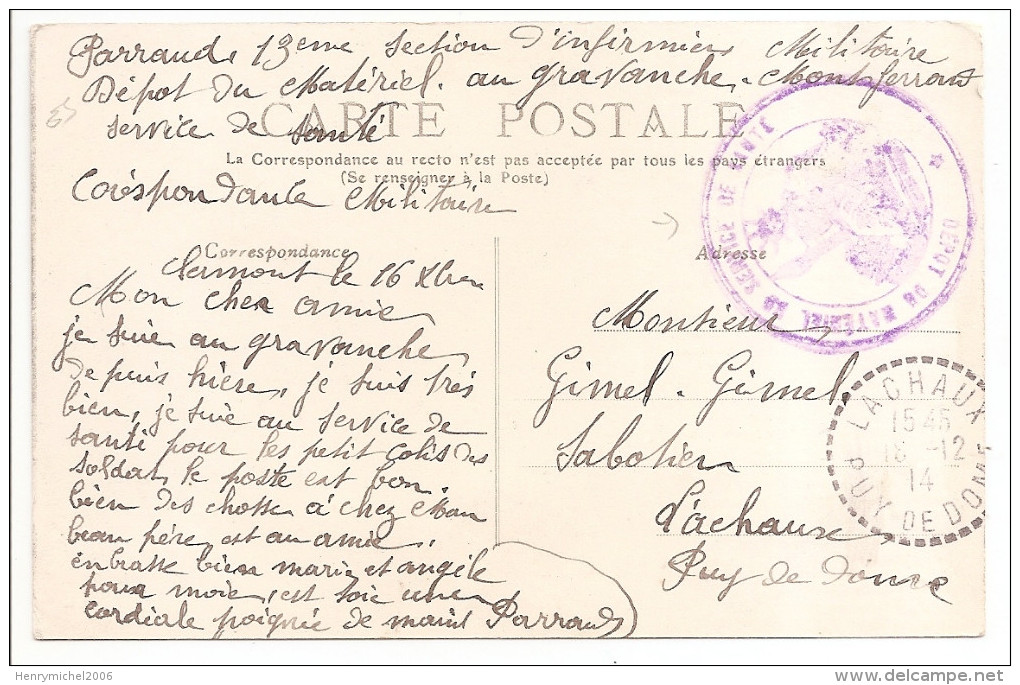 Parraud, 13eme Section D'infirmiers Militaire
Dépot Du Matériel. au gravanche. Montferrant
Service de Santé
65
CARTE POSTALE
La Correspondance au recto n'est pas acceptée par tous les pays étrangers
(Se renseigner à la Poste)
Coréspondante Militaire
DÉPOT DE MATÉRIEL DU SERVICE DE SANTÉ
Correspondance
Clermont le 16 Xbre
Mon cher amie,
je suie au gravanche,
Depuis hière, je suis très
bien, je suie au service de
santé pour les petit colis des
soldat, le poste est bon.
bien des chosse a chez Mon
beau père, est au amie,
énbrasse bien marie et angèle
pour moie, est toie une
cordiale poignée de maint Parraud
Adresse
Montieur,
Gimel-Gimel
Sabotier
Lachaux,
Puy de Dome
LACHAUX
15 45
18 -12
14
PUY DE DOME
Henrymichel2006
delcampe.net